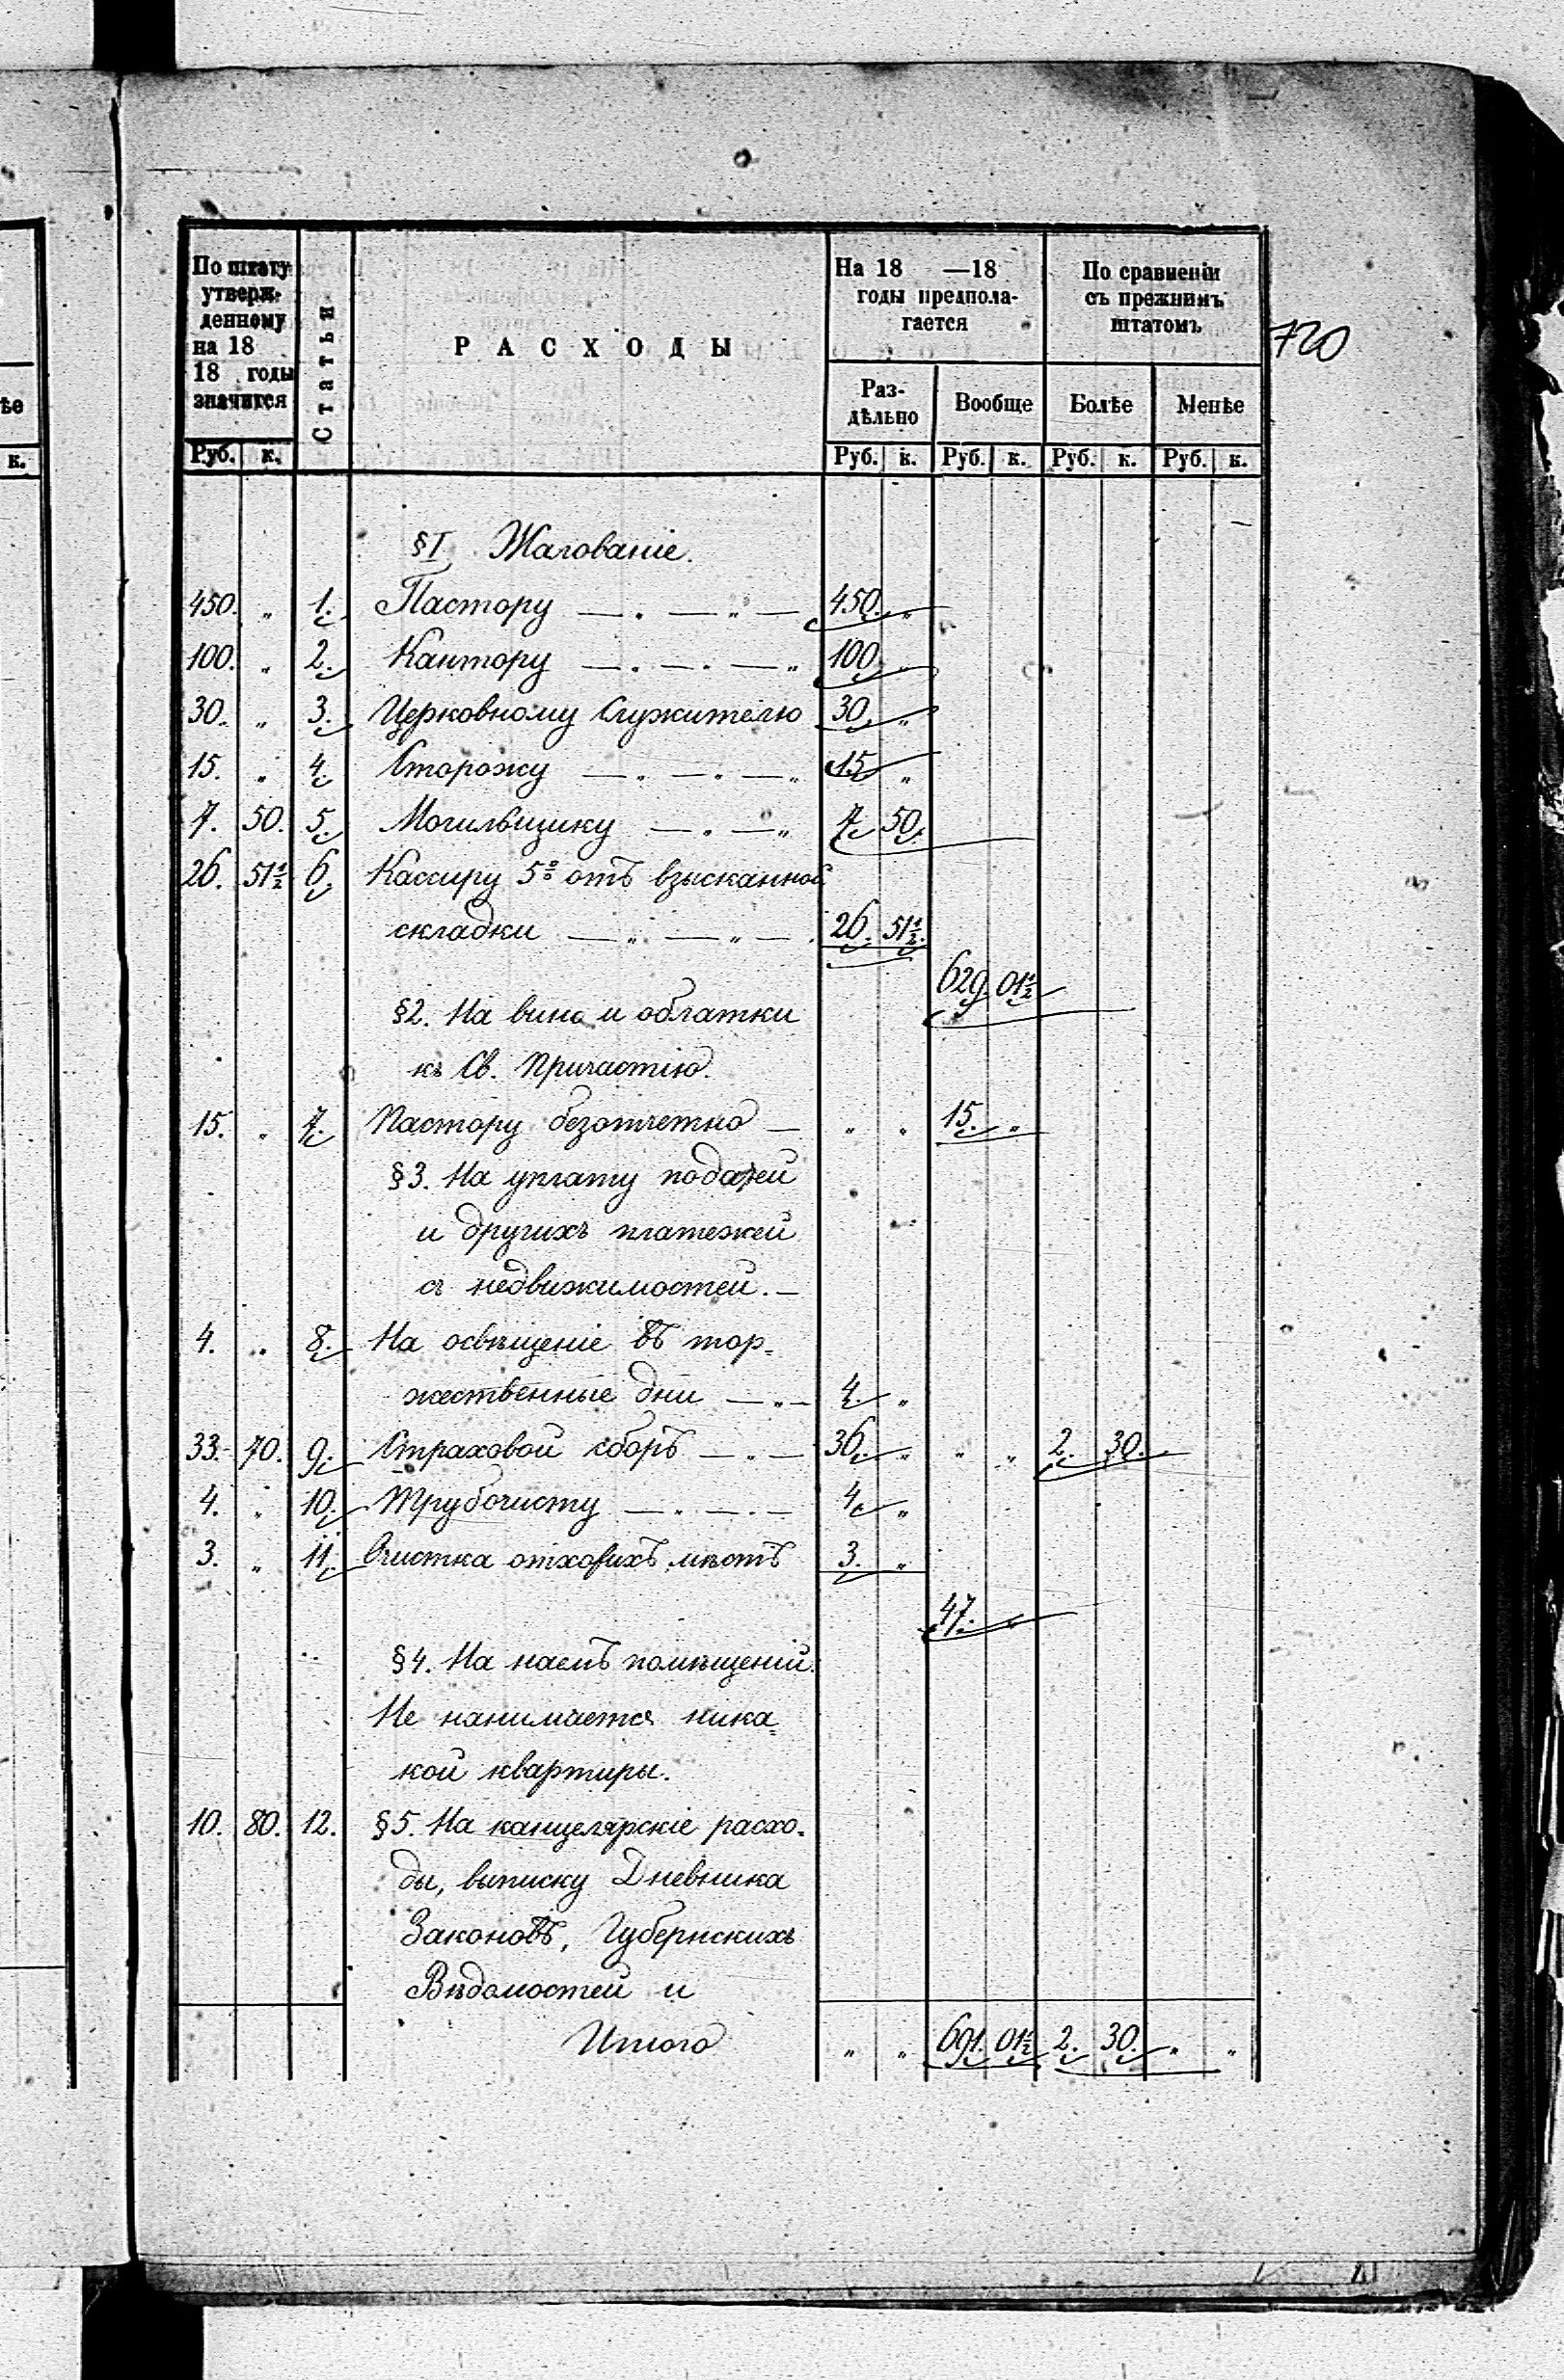 ѣе
к.
По штату утверж-денному на 18 18 годы значится
Статьи
РАСХОДЫ
На 18 —18 годы предпола-гается
По сравненіи съ прежнимъ штатомъ
720
Раз-дѣльно
Вообще
Болѣе
Менѣе
Руб. к. Руб. к. Руб. к. Руб. к. Руб. к.
§I Жалованіе.
450. „ 1. Пастору — „ — „ — 450. „
100. „ 2. Кантору — „ — „ — „ 100. „
30. „ 3. Церковному Служителю 30. „
15. „ 4. Сторожу — „ — „ — „ 15. „
7. 50. 5. Могильщику — „ — „ 7. 50.
26. 51½ 6. Кассиру 5% отъ взысканной
складки — „ — „ — 26. 51½.
629. 01½
§2. На вино и облатки
къ Св. Причастію.
15. „ 7. Пастору безотчетно — „ „ 15. „
§3. На уплату податей
и другихъ платежей
съ недвижимостей. —
4. „ 8. На освѣщеніе въ тор-
жественные дни — „ — 4. „
33. 70. 9. Страховой сборъ — „ — 36. „ „ „ 2. 30.
4. „ 10. Трубочисту — „ — „ — 4. „
3. „ 11. Очистка отхожихъ мѣстъ 3. „
47. „
§4. На наемъ помѣщеній.
Не нанимается ника-
кой квартиры.
10. 80. 12. §5. На канцелярскіе расхо-
ды, выписку Дневника
Законовъ, Губернскихъ
Вѣдомостей и
Итого „ „ 691. 01½ 2. 30. „ „